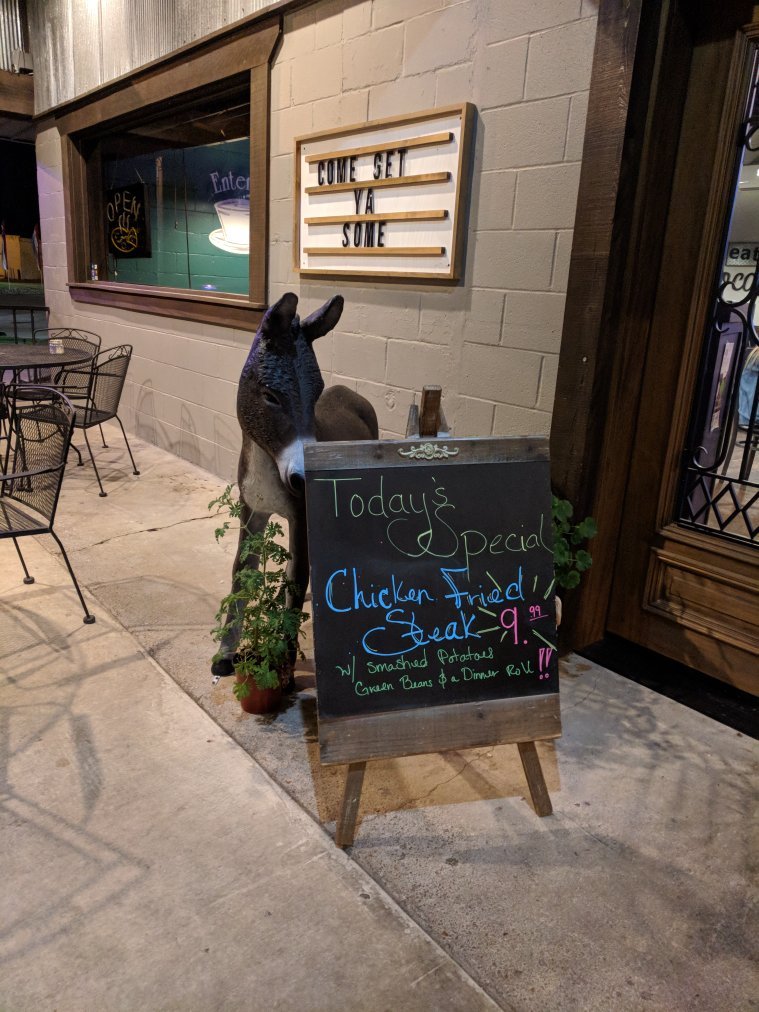 COME GET
YA
SOME
OPEN
Enter
Today's
Special
Chicken Fried
Steak 9.99
w/ Smashed Potatoes
Green Beans & a Dinner Roll !!
eat